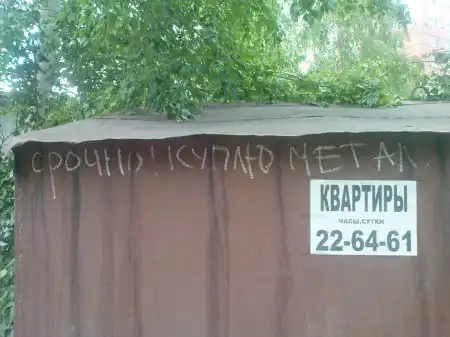 СРОЧНО! КУПЛЮ МЕТАЛ
КВАРТИРЫ
ЧАСЫ.СУТКИ
22-64-61